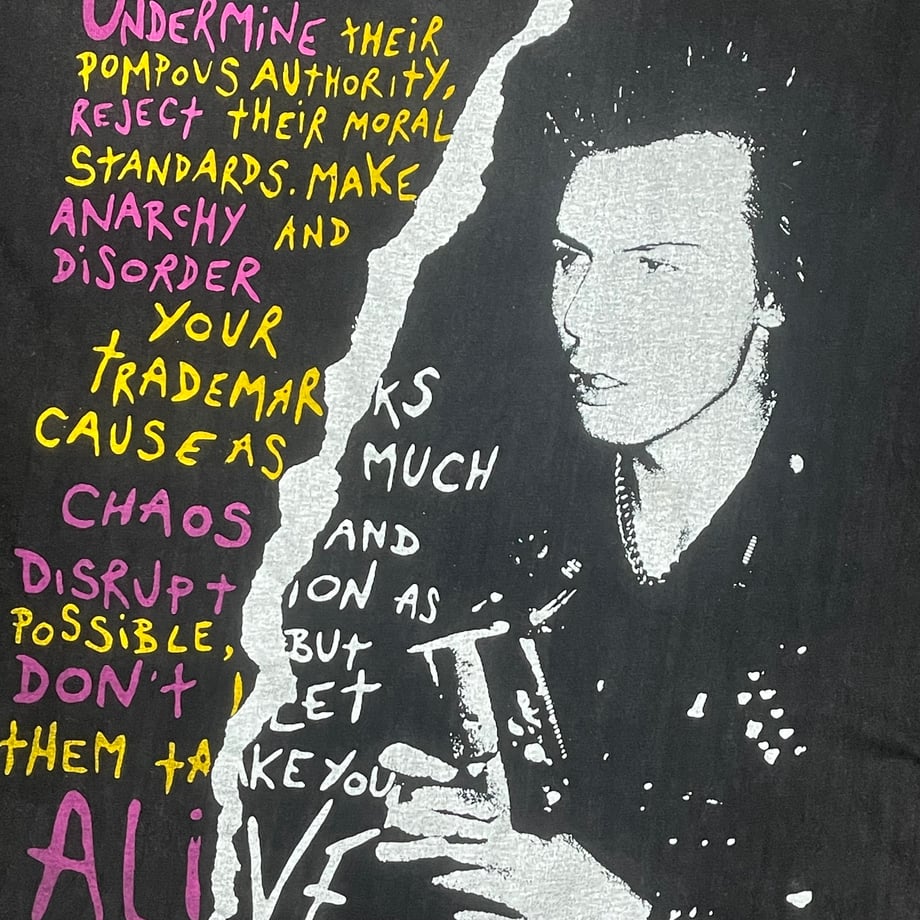 UNDERMiNE tHEiR
POMPOUS AUtHORitY,
REJECt tHEiR MORAL
StANDARDS. MAKE
ANARCHY AND
DiSORDER
YOUR
tRADEMARKS
CAUSE AS MUCH
CHAOS AND
DiSRUPtION AS
POSSiBLE, BUt
DON't LEt
tHEM tAKE YOU
ALiVE